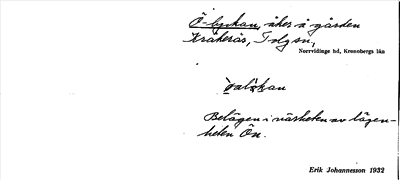 Ö-lyckan, åker å gården
Kråkerås, Tolgsn,
Norrvidinge hd, Kronobergs län
Belägen i närheten av lägen-
heten Ön.
Erik Johannesson 1932